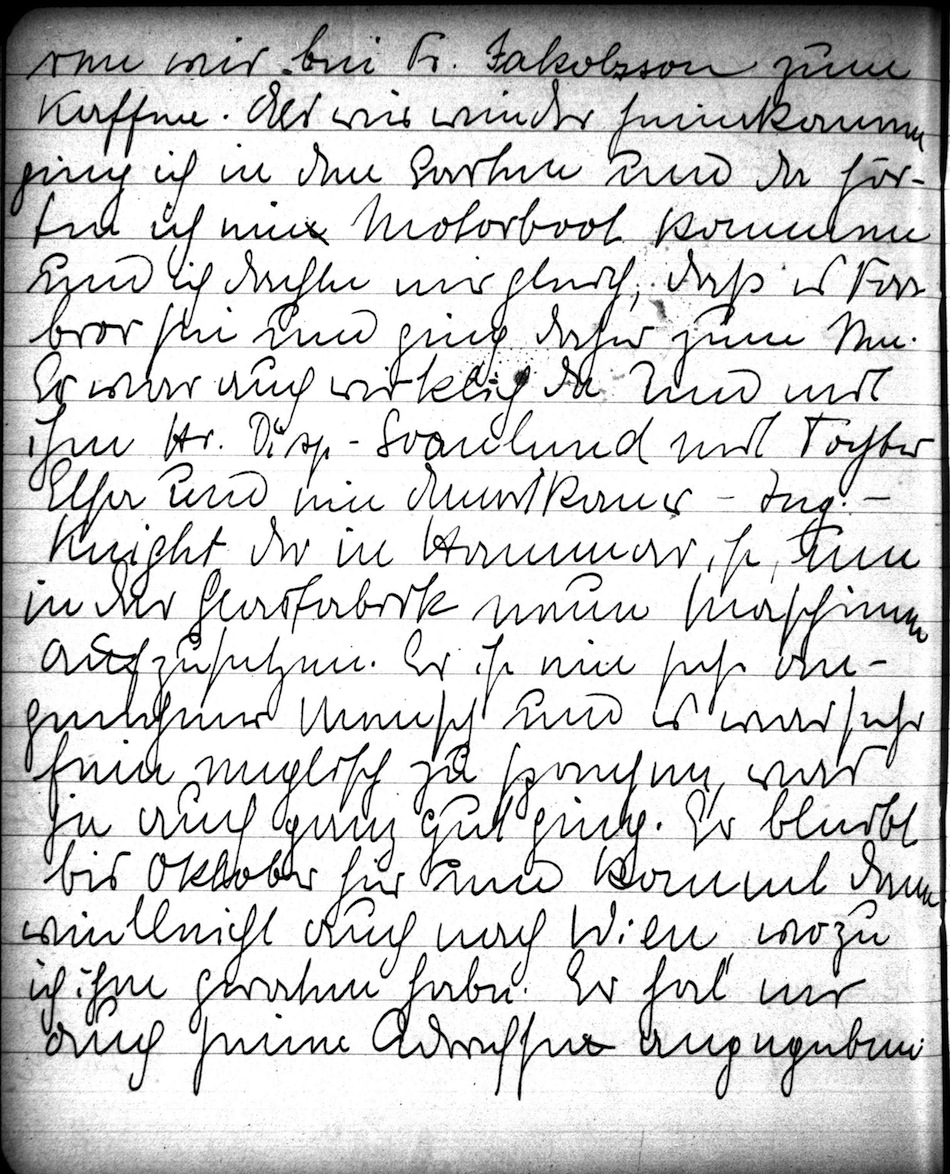 ren wir bei Fr. Jakobsson zum
Kaffee. Als wir wieder heimkamen
ging ich in den Garten und da hör-
te ich ein Motorboot kommen
und ich dachte mir gleich, daß es Far-
bror sei und ging daher zum Me.
Er war auch wirklich da und mit
ihm Hr. Disp.- Svanlund mit Tochter
Elsa und ein Amerikaner - Ing. -
Knight der in Hammar ist, um
in der Glasfabrik neue Maschinen
aufzusetzen. Er ist ein sehr an-
genehmer Mensch und es war sehr
fein englisch zu sprechen, was
ja auch ganz gut ging. Er bleibt
bis Oktober hier und kommt dann
vielleicht auch nach Wien wozu
ich ihm geraten habe. Er hat mir
auch seine Adresse angegeben